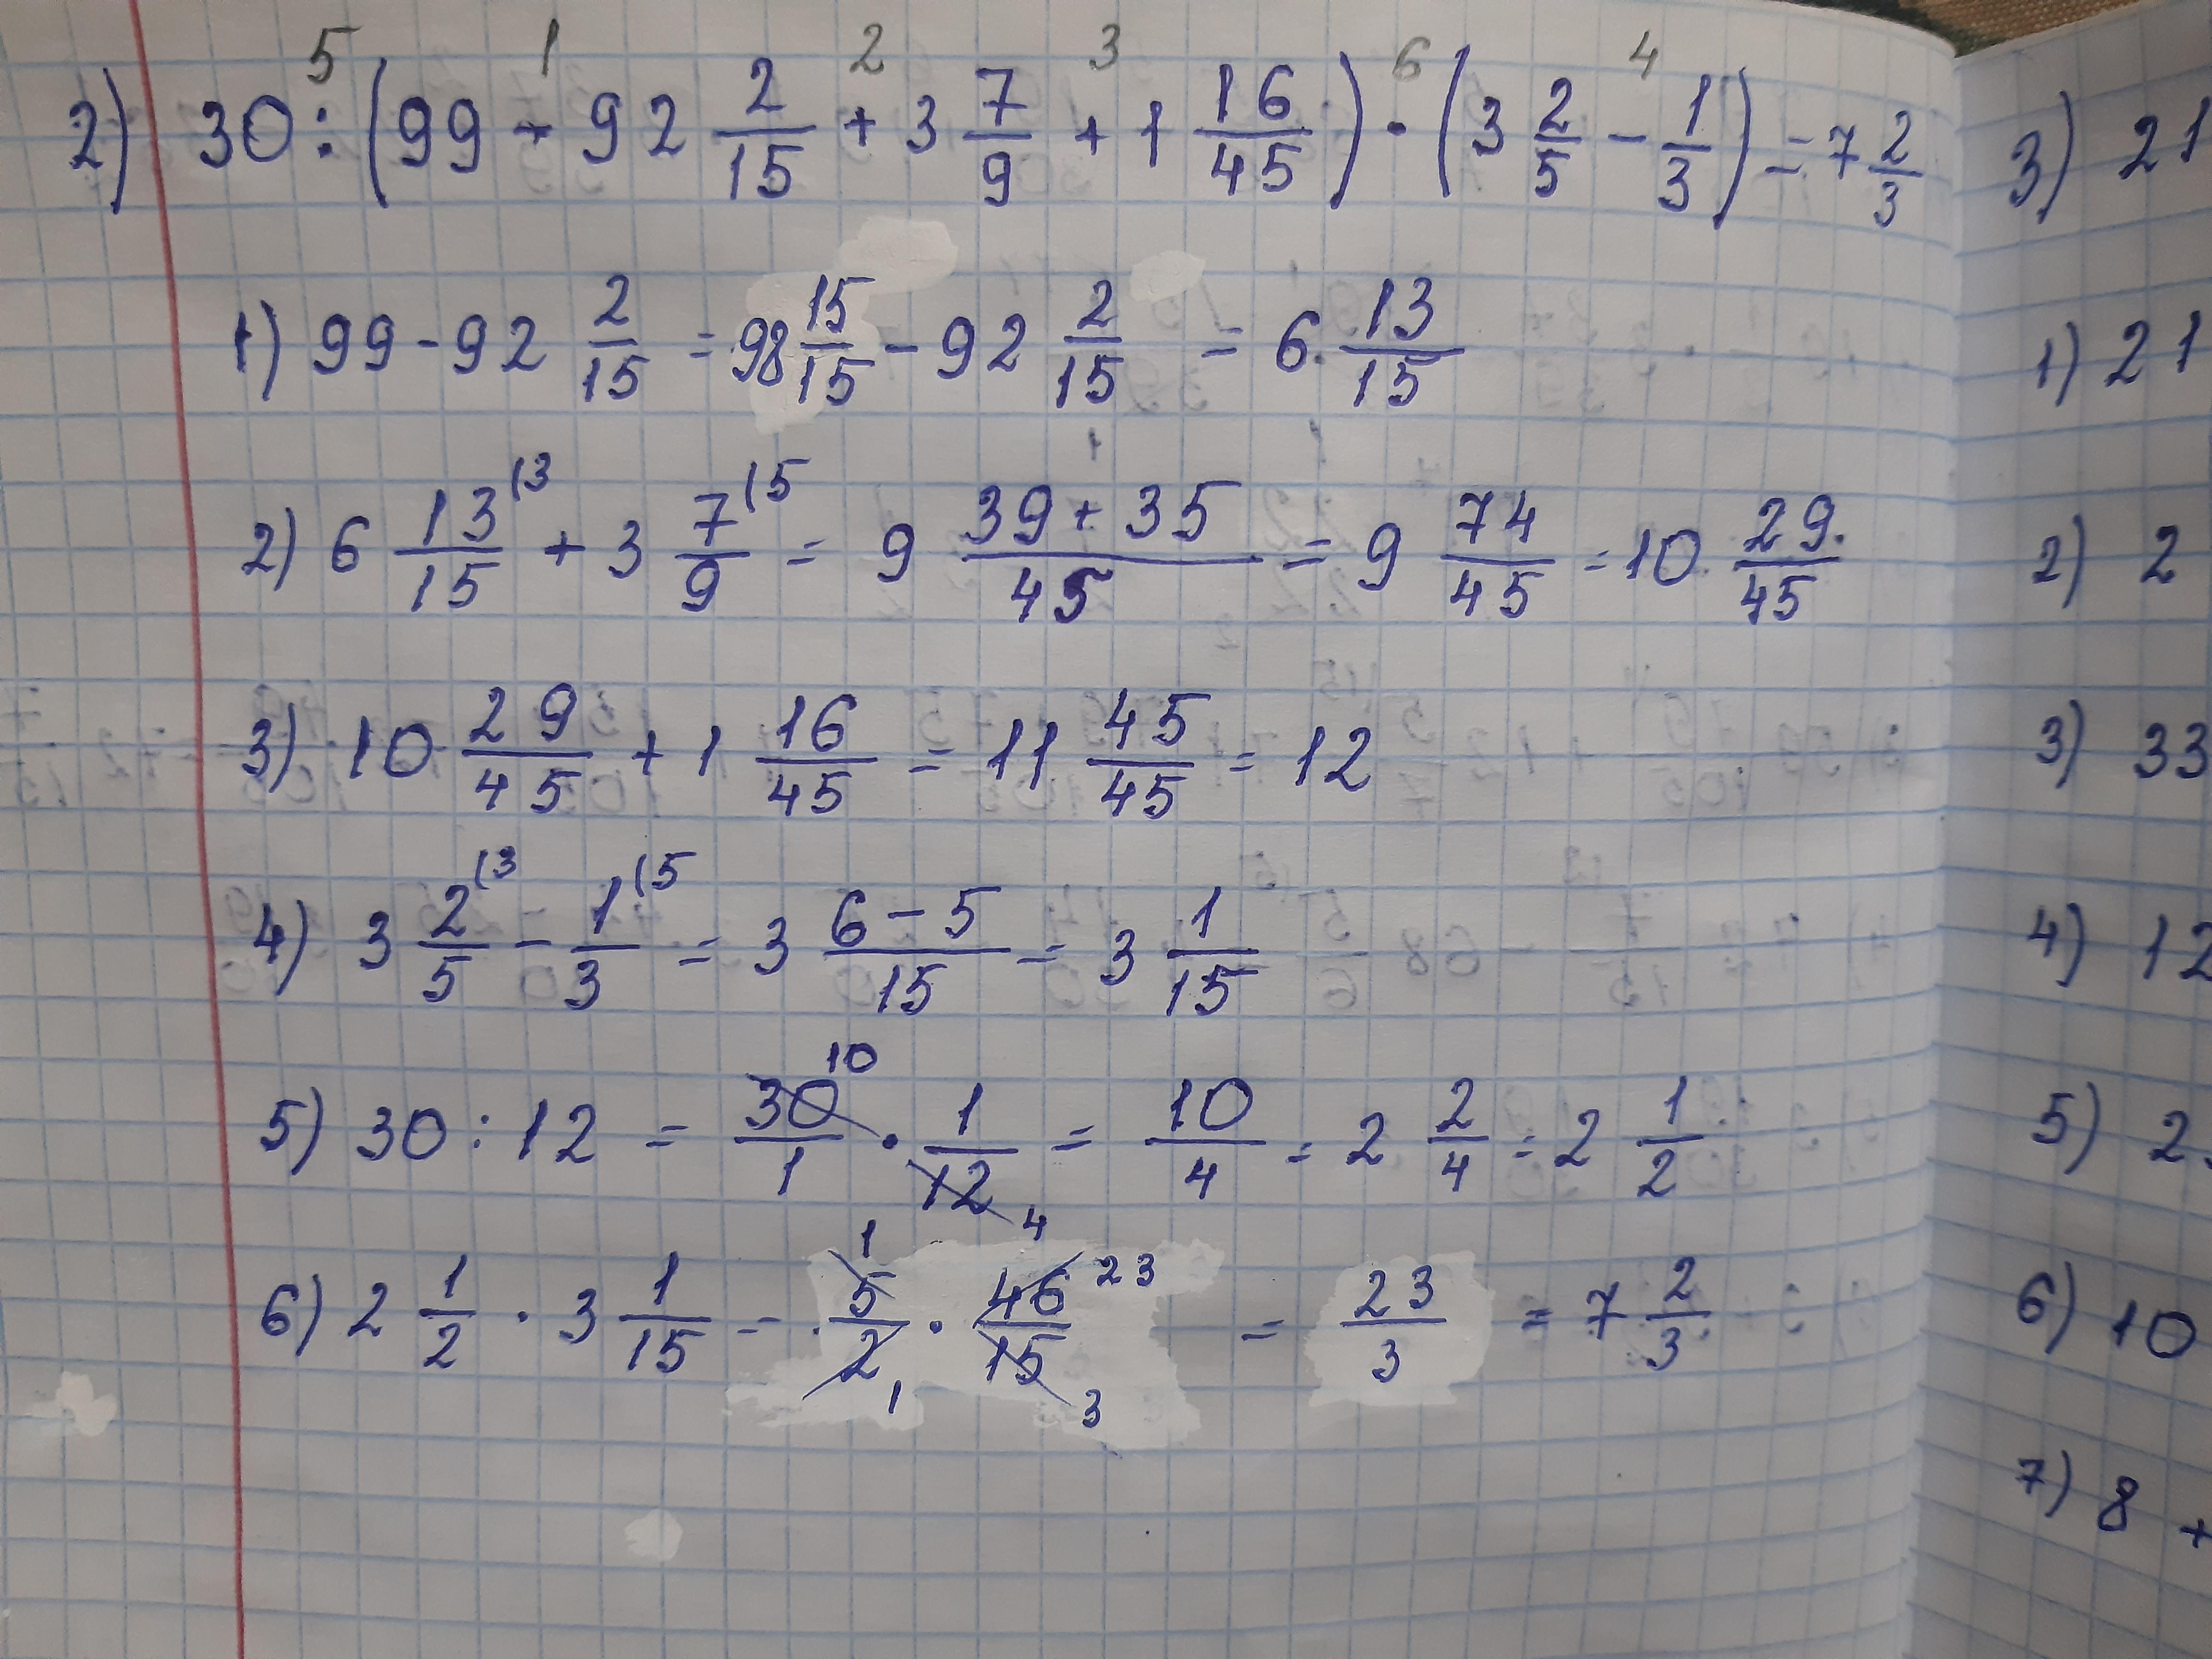 5 1 2 3 6 4
2) 30 : (99 - 92 2/15 + 3 7/9 + 1 16/45) · (3 2/5 - 1/3) = 7 2/3
1) 99 - 92 2/15 = 98 15/15 - 92 2/15 = 6 13/15
2) 6 13/15 (3 + 3 7/9 (5 = 9 39 + 35/45 = 9 74/45 = 10 29/45
3) 10 29/45 + 1 16/45 = 11 45/45 = 12
4) 3 2/5 (3 - 1/3 (5 = 3 6 - 5/15 = 3 1/15
5) 30 : 12 = 30 10/1 · 1/12 4 = 10/4 = 2 2/4 = 2 1/2
6) 2 1/2 · 3 1/15 = 5 1/2 1 · 46 23/15 3 = 23/3 = 7 2/3
3) 21
1) 21
2) 2
3) 33
4) 12
5) 2
6) 10
7) 8 +